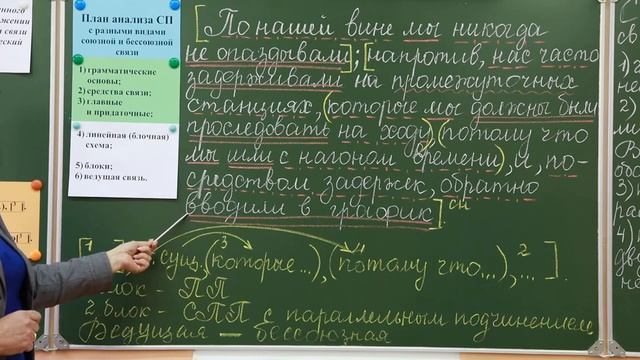 План анализа СП
с разными видами
союзной и бессоюзной
связи
1) грамматические
основы;
2) средства связи;
3) главные
и придаточные;
4) линейная (блочная)
схема;
5) блоки;
6) ведущая связь.
[По нашей вине мы никогда
не опаздывали];[напротив, нас часто
задерживали на промежуточных
станциях,(которые мы должны были
проследовать на ходу)(потому что
мы шли с нагоном времени), и, по-
средством задержек, обратно
вводили в график].сн
сущ.,(которые...),(потому что...),...].
блок - ПП
2 блок - СПП с параллельным подчинением
Ведущая – бессоюзная